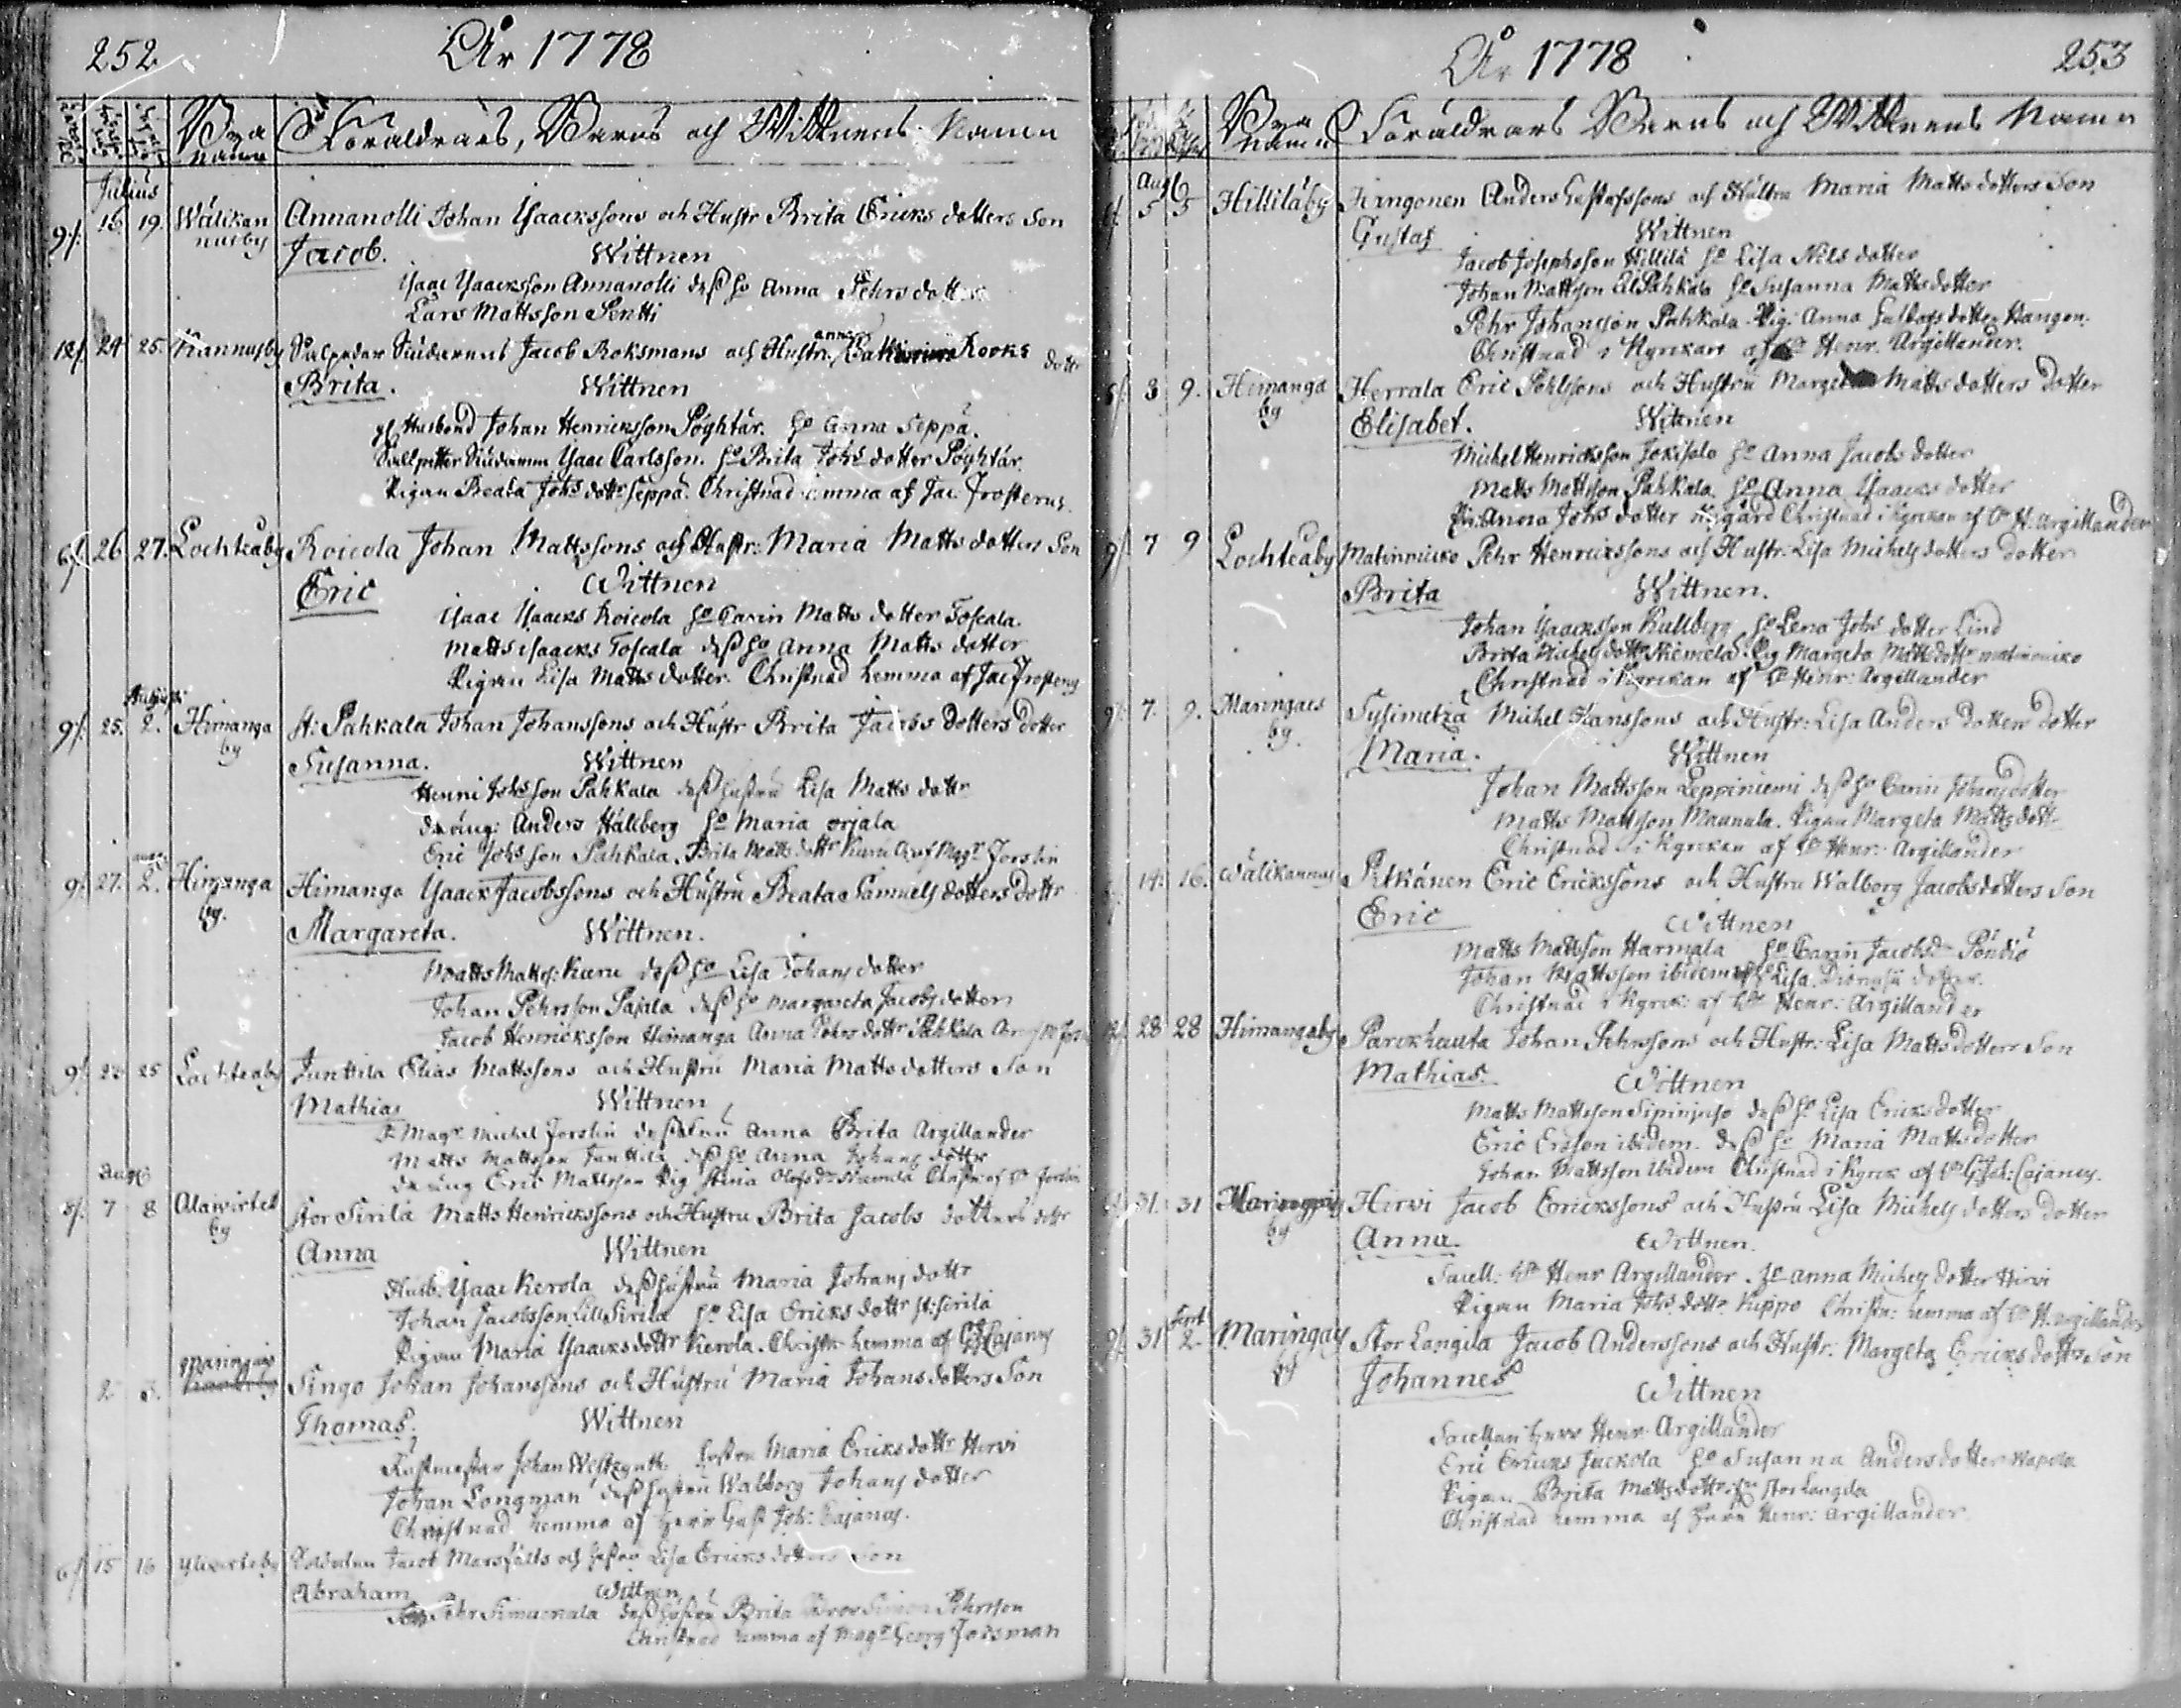 252 År 1778
Bya Namn Föräldrars, Barns och Wittnens Namn
Julius
9/. 16 19. Wälikan nusby Annanolli Johan Isaackssons och Hustr Brita Ericks dotters Son
Jacob. Wittnen
Isaac Isaacksson Annanolli dess ho Anna Pehrs dotter
Lars Mattsson Pentti
12/. 24 25. Mannusby Salpeter Siudarens Jacob Roksmans och Hustr. anna Rooks dottr
Brita. Wittnen
Husbond Johan Henricksson Pöyhtär. ho Anna Seppä.
Sallpetter Siudaren Isaac Carlsson. ho Brita Johs dotter Pöyhtär.
Pigan Beata Johs dottr Seppä. Christnad hemma af Jac Frosterus.
6/. 26 27. Lochteåby Roicola Johan Mattssons och Hustr: Maria Matts dotters Son
Eric Wittnen
Isaac Isaacks Roicola ho Carin Matts dotter Toscala.
Matts Isaacks Toscala dess ho Anna Matts dotter
Pigan Lisa Matts dotter. Christnad hemma af Jac Frosterus
August
9/. 25. 2. Himanga by st: Pahkala Johan Johanssons och Hustr Brita Jacobs dotters dotter
Susanna. Wittnen
Henric Johsson Pahkala dess hustru Lisa Matts dottr
dräng: Anders Hällberg ho Maria orjala
Eric Johsson Pahkala. Brita Matts dottr Kuru Ch af Magr Forslin
9/. 27. 2. Himanga by. Himanga Isaack Jacobssons och Hustru Beata Samuels dotters dottr
Margareta. Wittnen.
Matts Matts: Kuru dess ho Lisa Johans dotter
Johan Pehrsson Pajala dess ho Margareta Jacobs dotter
Jacob Henricksson Himanga Anna Pehrs dottr Pahkala
9/. 23 25 Lochteåby Junttila Elias Mattssons och Hustru Maria Matts dotters Son
Mathias Wittnen
Magr Michel Forslin dess fru Anna Brita Argillander
Matts Mattsson Junttila dess ho Anna Johans dottr
dräng Eric Mattsson Pig Stina Olofs dr Niemelä Christn: af Hr Forslin
Aug
8/. 7 8 Alawirtes by Stor Sirilä Matts Henrickssons och Hustru Brita Jacobs dotters dottr
Anna Wittnen
Husb. Isaac Kerola dess hustru Maria Johans dottr
Johan Jacobsson Lill Sirilä ho Lisa Ericks dottr st: Sirilä
Pigan Maria Isaacks dottr Kerola. Christn hemma af Cajanus
2 3. Maringais Singo Johan Johanssons och Hustru Maria Johans dotters Son
Thomas. Wittnen
Johan Westzynth hustru Maria Ericks dottr Hirvi
Johan Longman dess hustru Walborg Johans dotter
Christnad hemma af Herr Gust Joh: Cajanus.
6/. 15 16 Yliwirteby Soldaten Jacob Marsfälts och hustru Lisa Ericks dotters Son
Abraham Wittnen
Pehr Simuenala dess hustru Brita Simon Pehrsson
Christnad hemma af Magr Georg Forsman
År 1778 253
Bya Namn Föräldrars Barns och Wittnens Namn
Aug
5 5 Hilliläby Kangonen Anders Gustafssons och Hustru Maria Matts dotters Son
Gustaf Wittnen
Jacob Josephsson Hillilä ho Lisa Nils dotter
Johan Mattsson Pahkala ho Susanna Matts dotter
Pehr Johansson Pahkala Pig: Anna Gustafs dotter Kangon.
Christnad i Kyrckan af Hr Henr. Argillander.
8 9. Himanga by Herrala Eric Pohlssons och Hustru Marget Matts dotters dotter
Elisabet. Wittnen
Michel Henricksson Jokisalo ho Anna Jacobs dotter
Matts Mattsson Pahkala. ho Anna Isaacks dotter
Pig. Anna Johs dotter Christnad i Kyrckan af Hr H. Argillander
9/. 7 9 Lochteåby Matinmicko Pehr Henrickssons och Hustr: Lisa Michels dotters dotter
Brita Wittnen.
Johan Isaacksson Kullberg ho Lena Johs dotter Lind
Brita Michels dottr Niemelä. Pig Margeta Matts dottr matinmicko
Christnad i Kyrckan af Hr Henr: Argillander
9/. 7. 9. Maringaes by. Sysimetzä Michel Hanssons och Hustr: Lisa Anders dotters dotter
Maria. Wittnen
Johan Mattsson Leppiniemi dess ho Carin Johans dotter
Matts Mattsson Maunula. Pigan Margeta Matts dottr
Christnad i Kyrckan af Hr Henr: Argillander
14. 16. Wälikannus Pitkänen Eric Erickssons och Hustru Walborg Jacobs dotters Son
Eric Wittnen
Matts Mattsson Harmala ho Carin Jacobs dr Pöndiö
Johan Mattsson ibidem ho Lisa Dionysii dotter.
Christnad i Kyrck: af Hr Henr: Argillander
28 28 Himangaby Parckhauta Johan Pehrssons och Hustr: Lisa Matts dotters Son
Mathias. Wittnen
Matts Mattsson Sipinjuso dess ho Lisa Ericks dotter
Eric Ersson ibidem. dess ho Maria Matts dotter
Johan Mattsson ibidem Christnad i Kyrck af Hr G Joh: Cajanus.
31. 31 Maringais by Hirvi Jacob Erickssons och Hustru Lisa Michels dotters dotter
Anna. Wittnen.
Sacell: Hr Henr Argillander. ho Anna Michels dotter Hirvi
Pigan Maria Johs dottr Kuppo Christn: hemma af Hr H. Argillander
Sept
9/. 31 2. Maringais by Stor Langila Jacob Anderssons och Hustr: Margeta Ericks dottrs Son
Johannes Wittnen
Sacellan Herr Henr Argillander
Eric Ericks Juckola ho Susanna Anders dotter Wapola
Pigan Brita Matts dottr Stor Langila
Christnad hemma af Herr Henr: Argillander